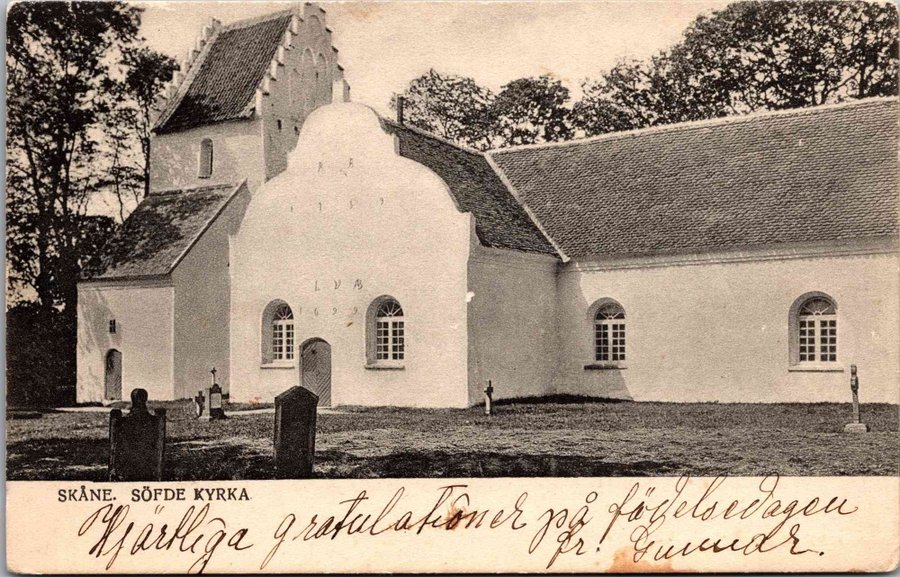 1699
SKÅNE. SÖFDE KYRKA.
Hjärtliga gratulationer på födelsedagen
fr. Gunnar.